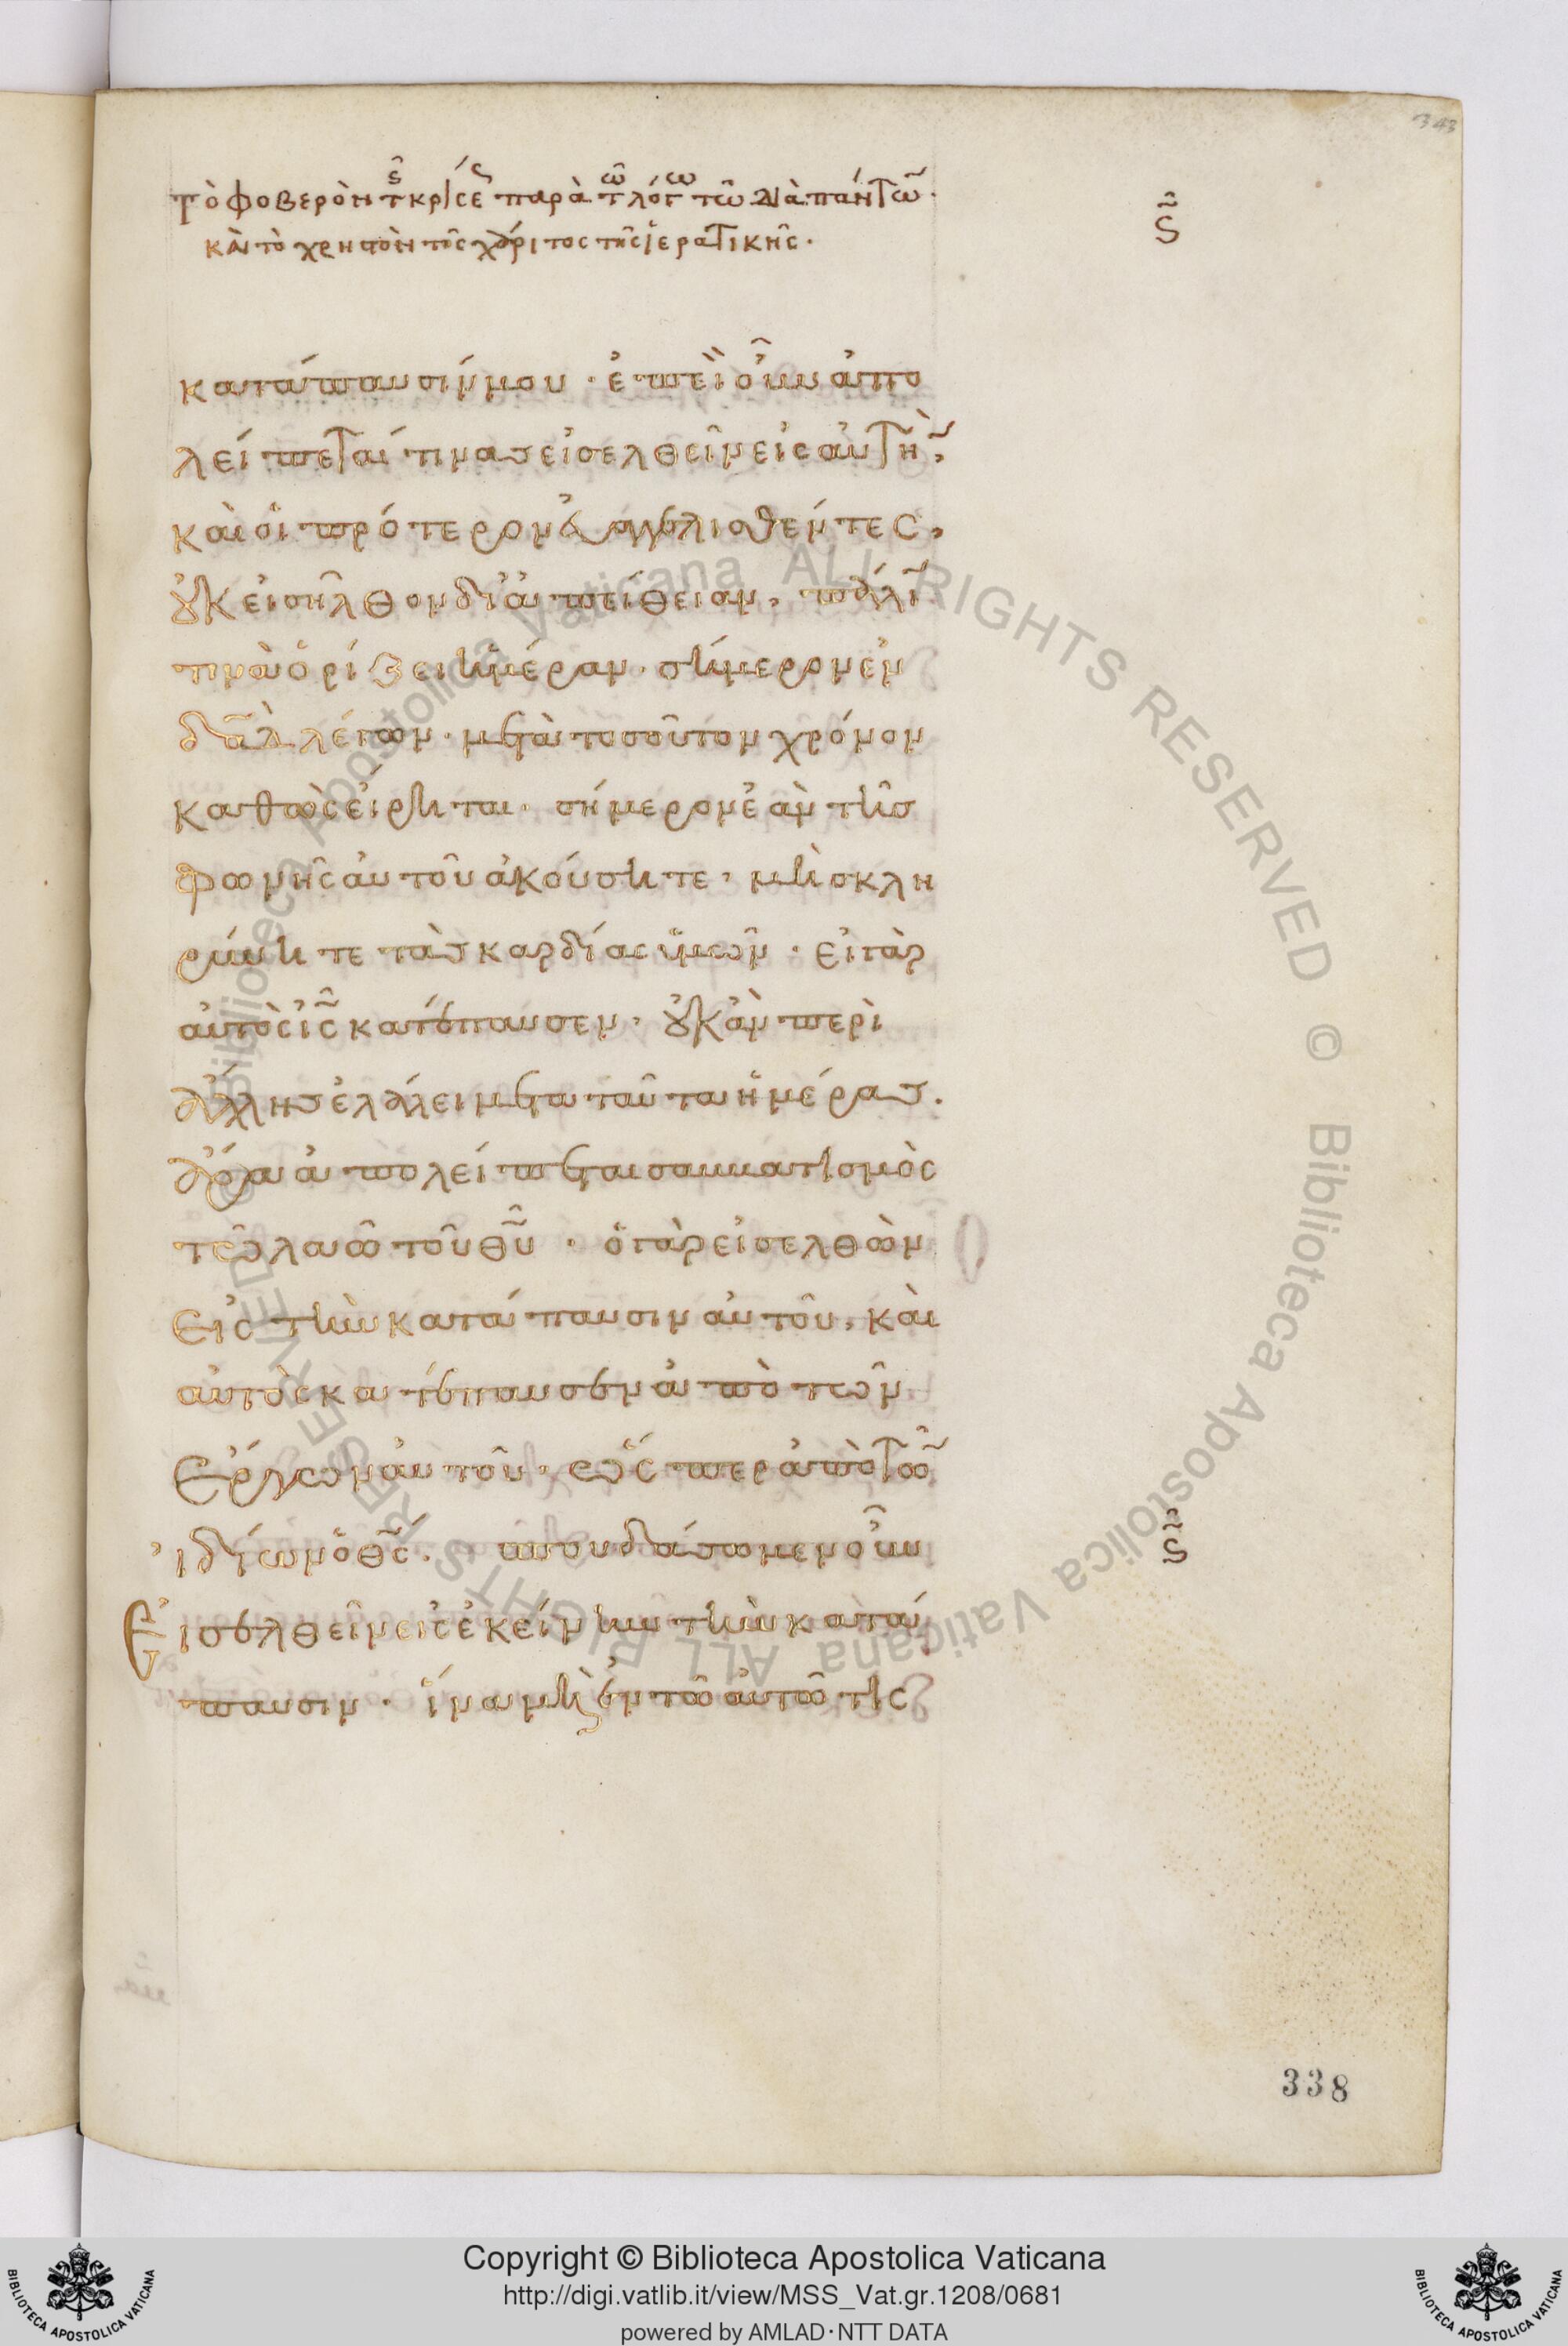 343
τὸ φοβερὸν τῆς κρίσεως παρὰ τῶ λόγω τῶ διὰ πάντων·
ϛ
καὶ τὸ χρηστὸν τῆς χάριτος τῆς ἱερατικῆς·
κατάπαυσίν μου· ἐπεὶ οὖν ἀπο
λείπεται τινας εἰσελθεῖν εἰς αὐτὴν,
καὶ οἱ πρότερον εὐαγγελισθέντες,
οὐκ εἰσῆλθον δι ἀπείθειαν, πάλιν
τινὰ ὁρίζει ἡμέραν· σήμερον ἐν
δαδ λέγων· μετὰ τοσοῦτον χρόνον
καθὼς εἴρηται· σήμερον ἐὰν τῆς
φωνῆς αὐτοῦ ἀκούσητε, μὴ σκλη
ρύνητε τὰς καρδίας ὑμῶν· εἰ γὰρ
αὐτοὺς ις κατέπαυσεν, οὐκ ἂν περὶ
ἄλλης ἐλάλει μετα ταῦτα ἡμέρας.
ἄρα ἀπολείπεται σαββατισμὸς
τῶ λαῶ τοῦ θυ· ὁ γὰρ εἰσελθὼν
εἰς τὴν κατάπαυσιν αὐτοῦ, καὶ
αὐτὸς κατέπαυσεν ἀπὸ τῶν
ἔργων αὐτοῦ, ὥσπερ ἀπὸ τῶν
ἰδίων ὁ θς. σπουδάσωμεν οὖν
ϛ
εἰσελθεῖν εἰς ἐκείνην τὴν κατά
παυσιν· ἵνα μὴ ἐν τῶ αὐτῶ τις
338
Copyright © Biblioteca Apostolica Vaticana
http://digi.vatlib.it/view/MSS_Vat.gr.1208/0681
powered by AMLAD·NTT DATA
BIBLIOTECA APOSTOLICA VATICANA
BIBLIOTECA APOSTOLICA VATICANA
Biblioteca Apostolica Vaticana ALL RIGHTS RESERVED © Biblioteca Apostolica Vaticana ALL RIGHTS RESERVED ©